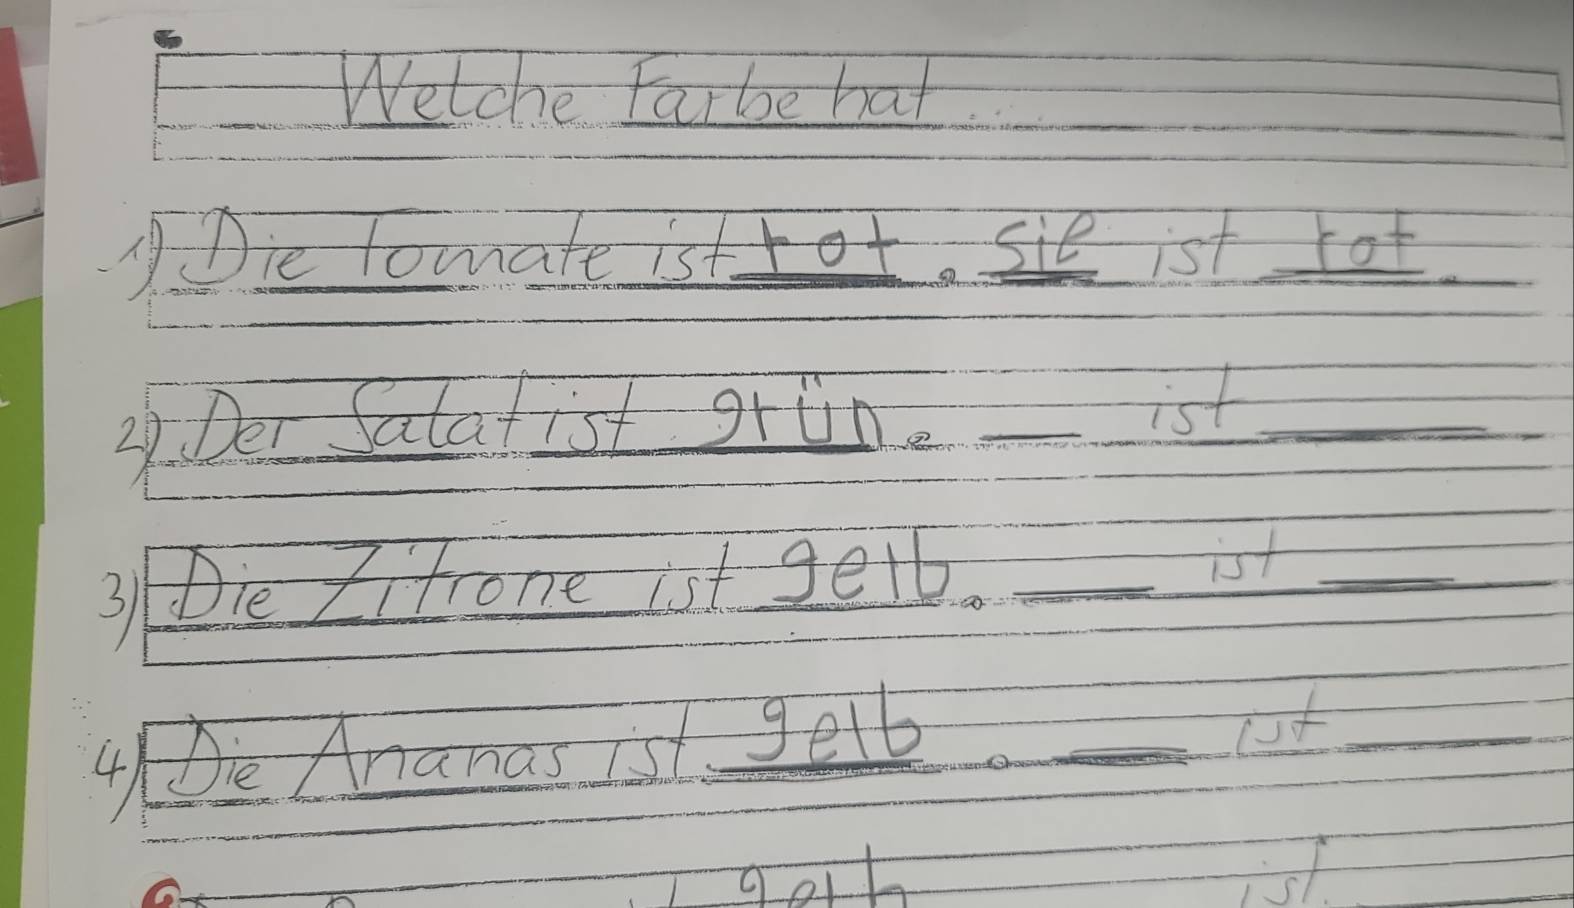 Welche Farbe hat ...
1) Die Tomate ist rot. sie ist rot.
2) Der Salat ist grün. ___ ist ___
3) Die Zitrone ist gelb. ___ ist ___
4) Die Ananas ist gelb. ___ ist ___
gelb ist